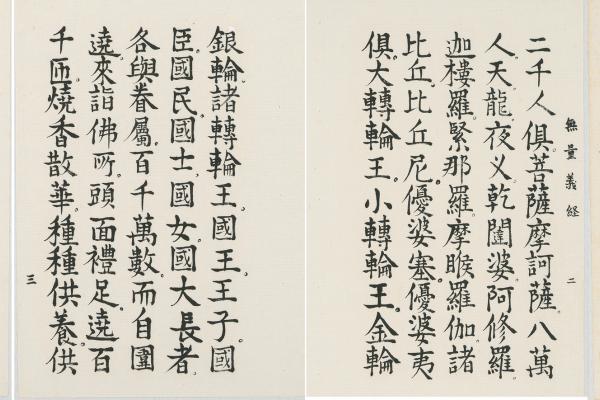 無量義経
二千人俱菩薩摩訶薩八萬
人天龍夜叉乾闥婆阿修羅
迦樓羅緊那羅摩睺羅伽諸
比丘比丘尼優婆塞優婆夷
俱大轉輪王小轉輪王金輪
二
銀輪諸轉輪王國王王子國
臣國民國士國女國大長者
各與眷屬百千萬數而自圍
遶來詣佛所頭面禮足遶百
千匝燒香散華種種供養供
三